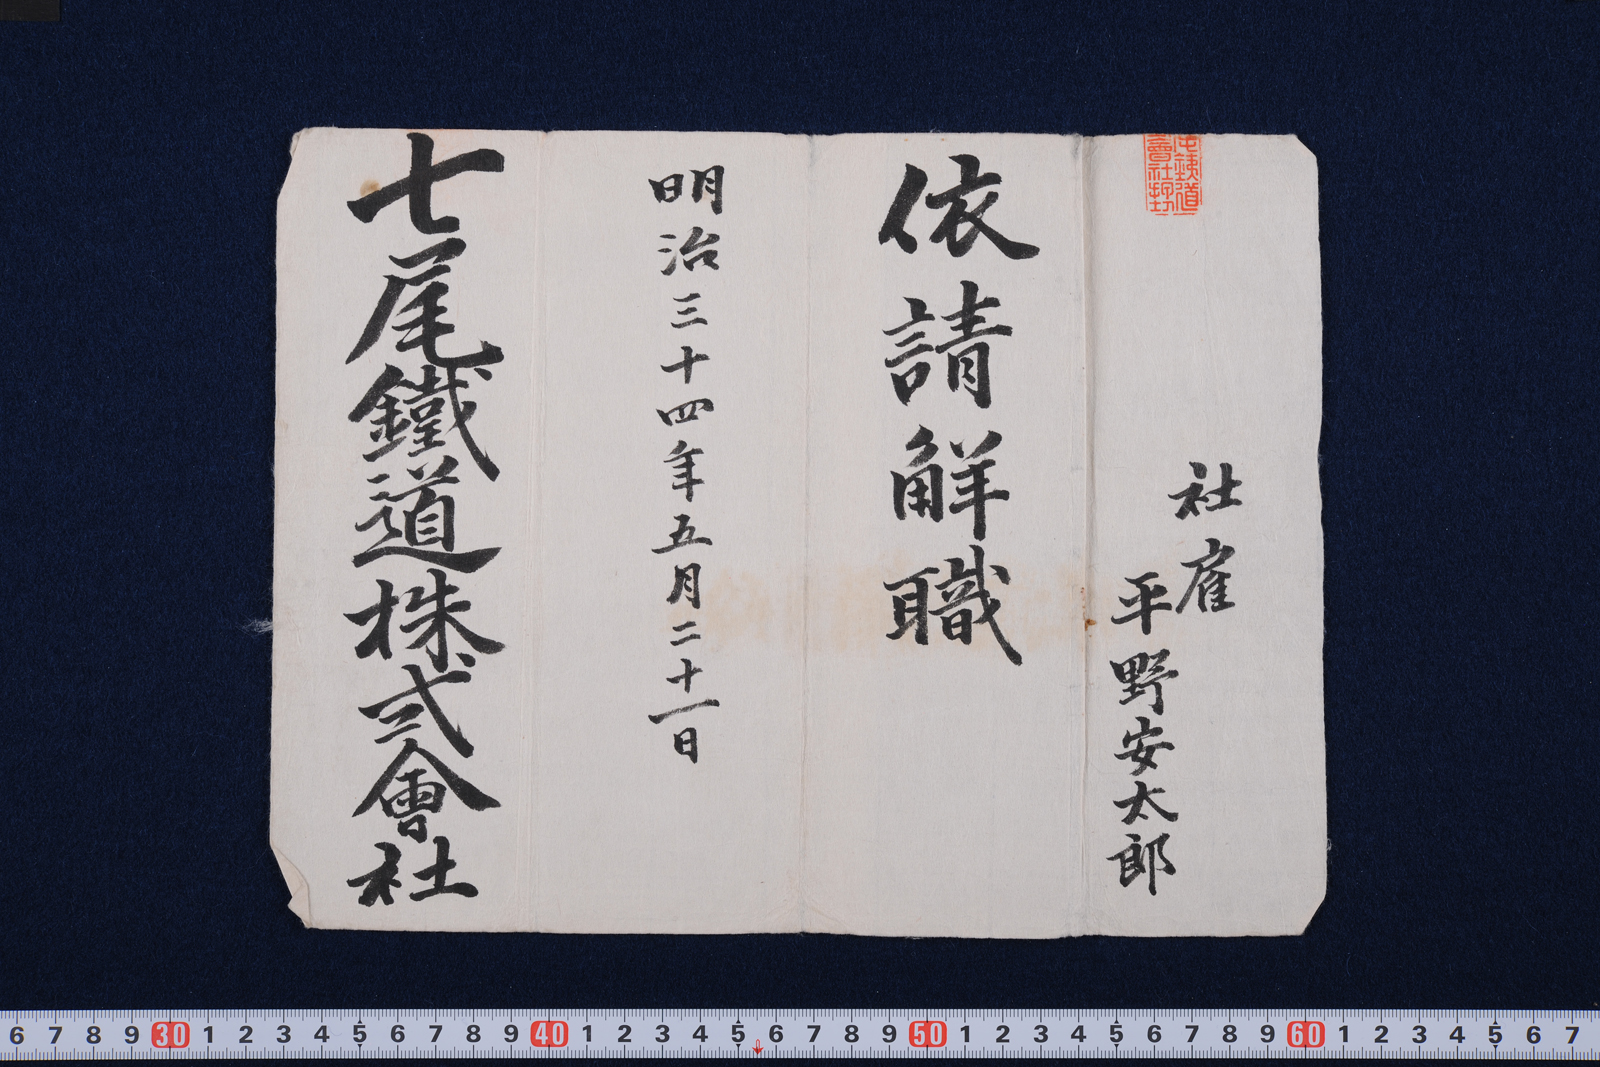 社雇
平野安太郎
依請解職
明治三十四年五月二十一日
七尾鐵道株式會社
鉄道
會社
6 7 8 9 30 1 2 3 4 5 6 7 8 9 40 1 2 3 4 5 6 7 8 9 50 1 2 3 4 5 6 7 8 9 60 1 2 3 4 5 6 7